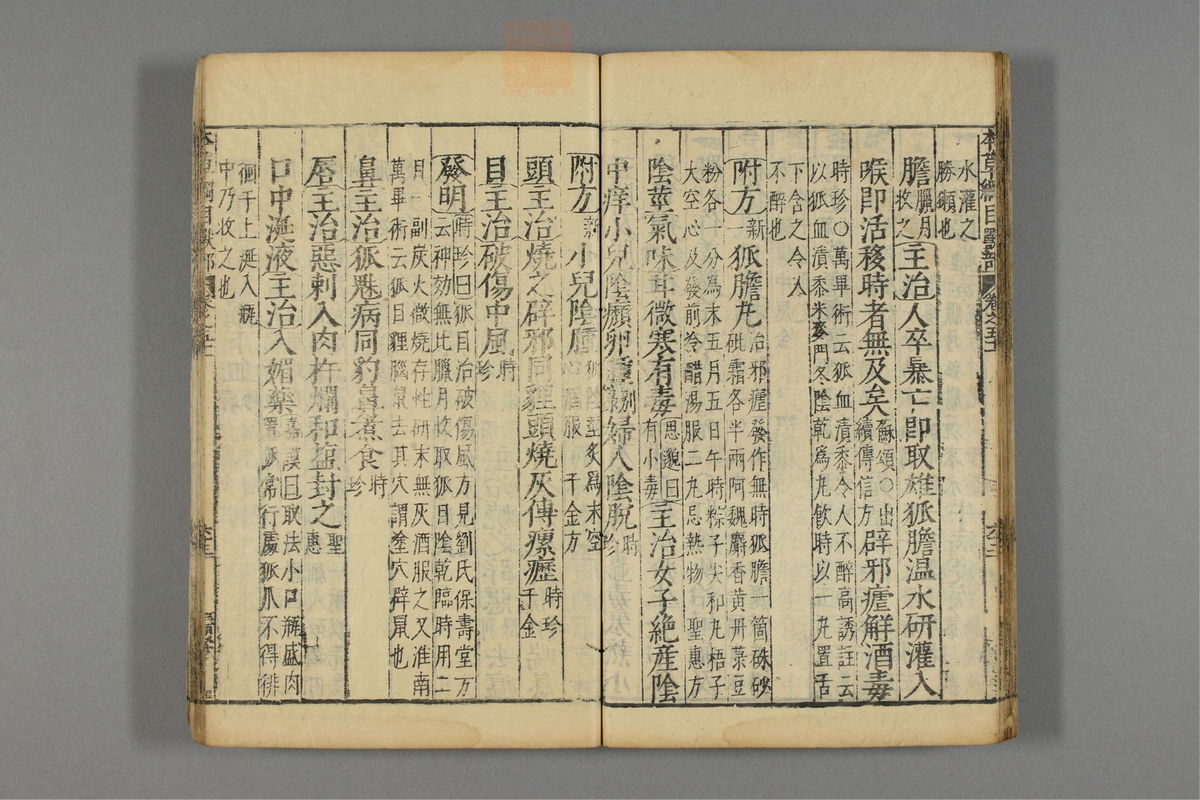 水灌之
勝獺也
膽臘月收之主治人卒暴亡即取雄狐膽温水研灌入
喉即活移時者無及矣蘇頌○出續傳信方辟邪瘧解酒毒
時珍○萬畢術云狐血漬黍令人不醉高誘註云
以狐血漬黍米麥門冬陰乾爲丸飲時以一丸置舌
下含之令人
不醉也
附方新一狐膽丸治邪瘧發作無時狐膽一箇硃砂
砒霜各半兩阿魏麝香黄丹菉豆
粉各一分爲末五月五日午時粽子尖和丸梧子
大空心及發前冷醋湯服二丸忌熱物聖惠方
陰莖氣味甘微寒有毒思邈曰有小毒主治女子絶産陰
中痒小兒陰㿗卵腫别録婦人陰脫時珍
附方新一小兒陰腫狐陰莖炙爲末空心酒服千金方
頭主治燒之辟邪同貍頭燒灰傅瘰癧時珍千金
目主治破傷中風時珍
發明時珍曰狐目治破傷風方見劉氏保壽堂方
云神効無比臘月收取狐目陰乾臨時用二
目一副炭火微燒存性研末無灰酒服之又淮南
萬畢術云狐目貍腦鼠去其穴謂塗穴辟鼠也
鼻主治狐魅病同豹鼻煮食時珍
唇主治惡刺入肉杵爛和鹽封之聖惠
口中涎液主治入媚藥嘉謨曰取法小口瓶盛肉
置狐常行處狐爪不得徘
徊于上涎入瓶
中乃收之也
本草綱目獸部 卷之五十一